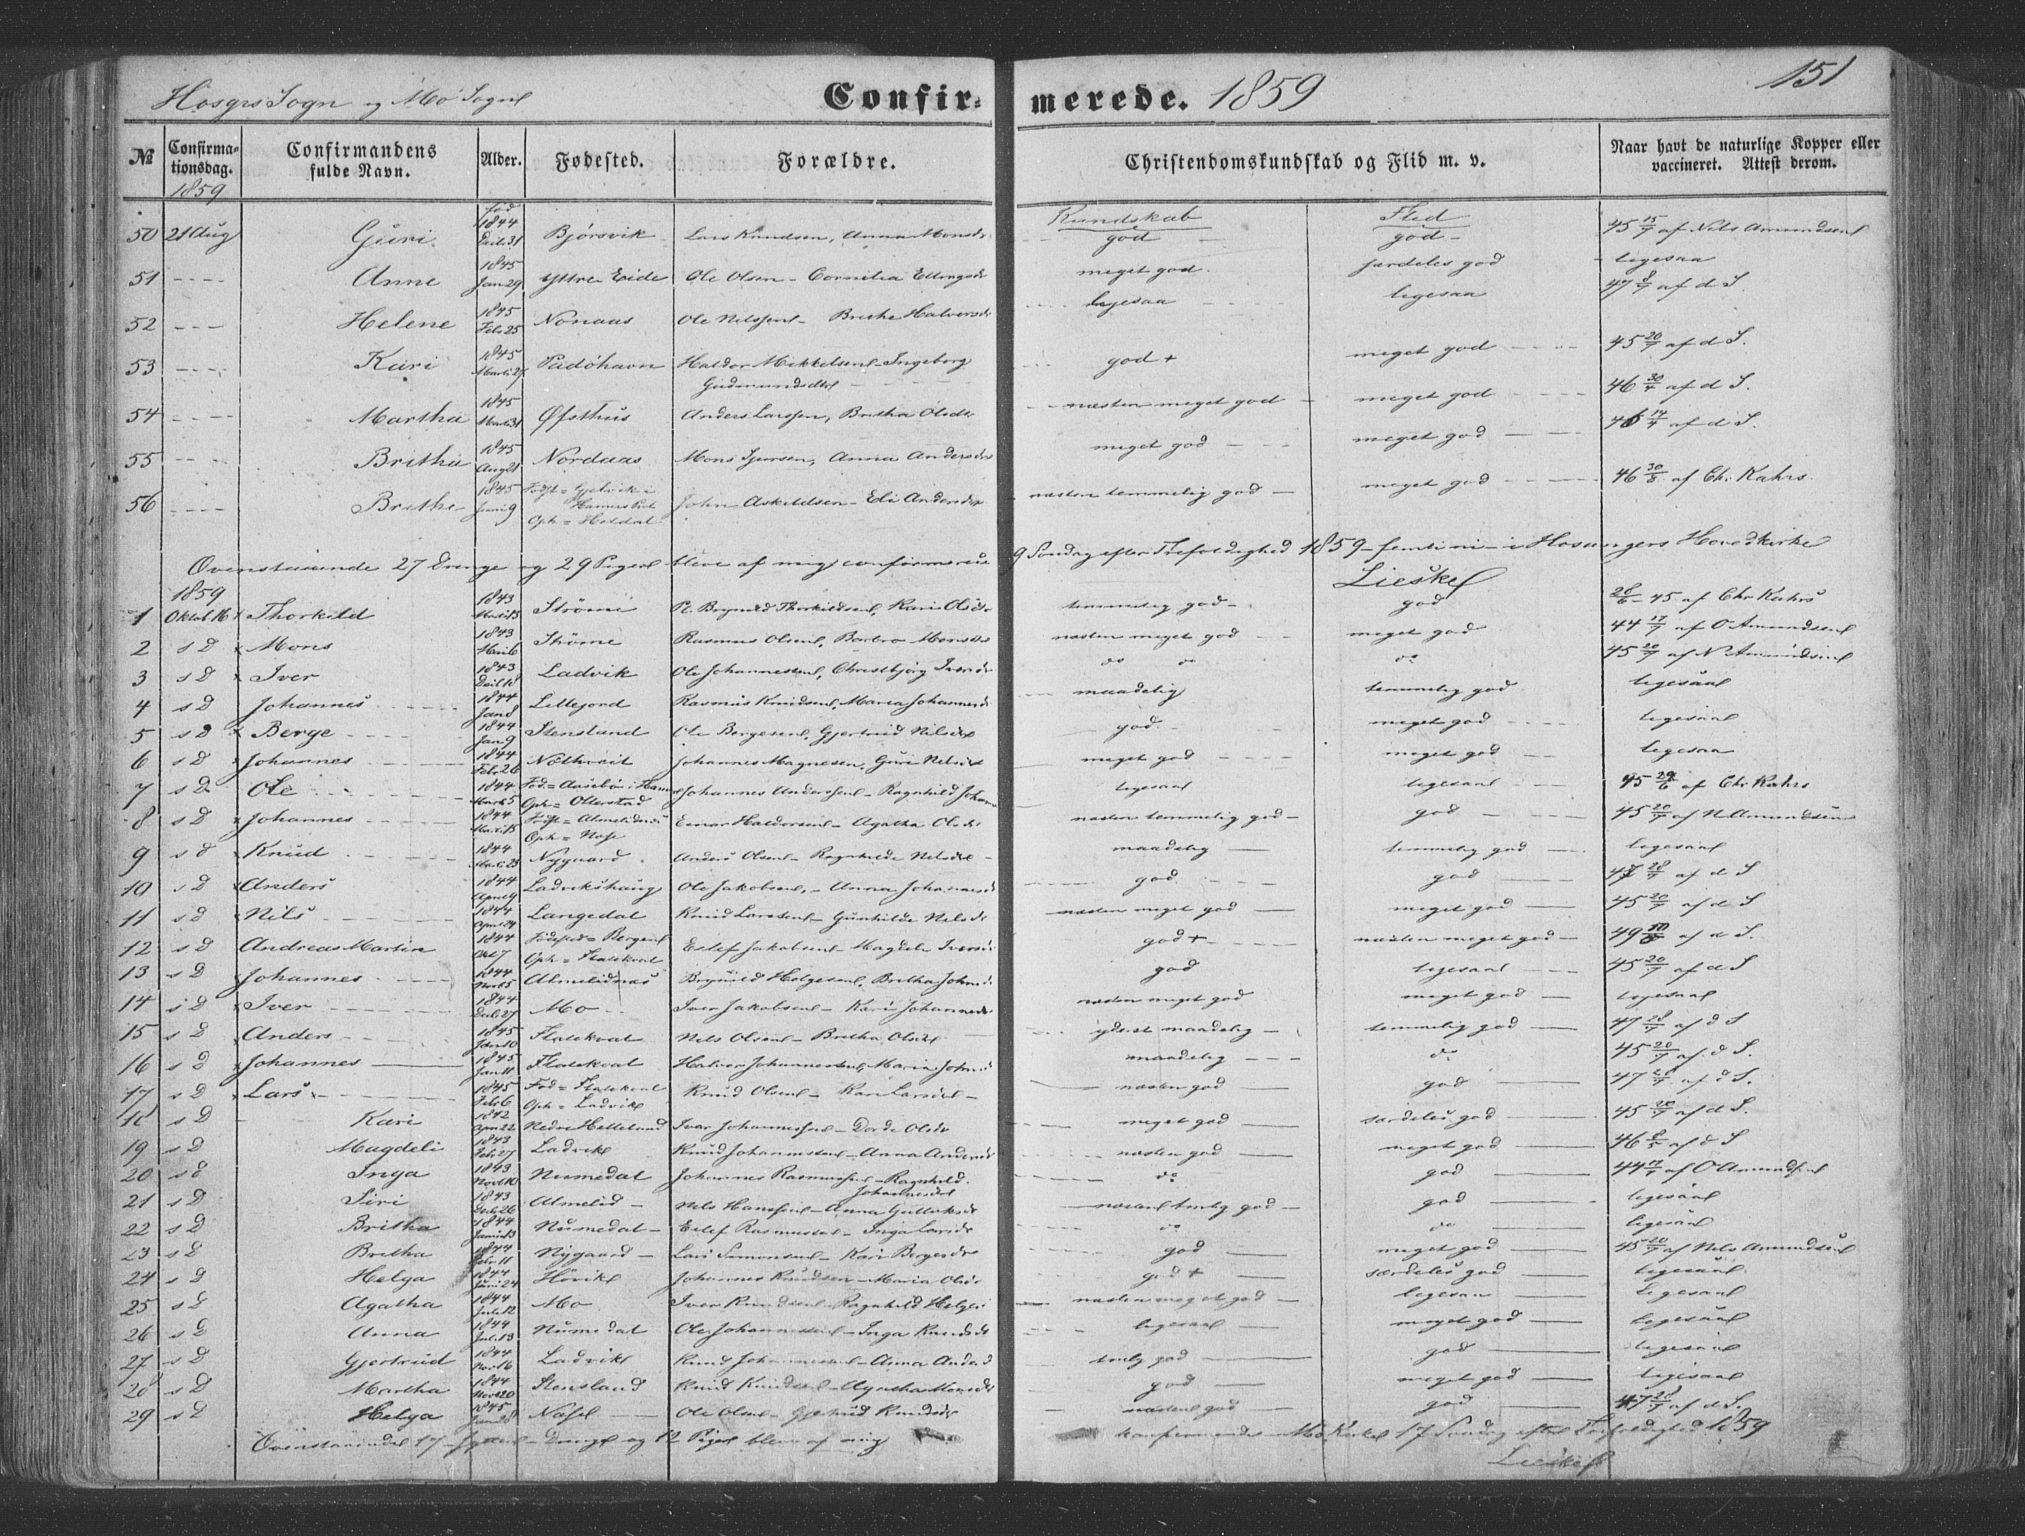 Hosgrs Sogn og Mo Sogn
Confirmerede. 1859
151
№ Confirmationsdag. Confirmandens fulde Navn. Alder. Fødested. Forældre. Christendomskundskab og Flid m. v. Naar havt de naturlige Kopper eller vaccineret. Attest derom.
1859
Kundskab Flid
50 21 Aug Guri født 1844 Bjørsvik Lars Knudsen, Anna Monsdr god god 45 15/7 af Nils Amundsen
51 Anne 1845 Jan 29 Yttre Eide Ole Olsen - Cornelia Ellingsdr meget god særdeles god ligesaa
52 Helene 1845 Febr 25 Nonaas Ole Nilssen - Brithe Halversdr ligesaa ligesaa 47 8/7 af d S.
53 Kari 1845 Padøhavn Haldor Mikkelsen - Ingeborg Gudmundsdtr god + meget god 45 20/7 af d S.
54 Martha 1845 Øfsthus Anders Larssen, Britha Olsdtr næsten meget god meget god 46 30/4 af d S.
55 Britha 1845 Aug 21 Nordaas Mons Sjursen, Anna Andersdr meget god meget god 46 14/7 af d S.
56 Brithe 1845 Juni 9 Fødst = Gjelvik i Hammers Opb = Holdal John Askildsen - Eli Andersdr næsten temmelig god meget god 46 30/8 af Chr. Kahrs.
Ovenstaaende 27 Drenge og 29 Piger bleve af mig confirmerede 9 Søndag efter Trefoldighed 1859 - femti ni - i Hosangers Hovedkirke
1859 Lieske
1 Oktob 16 Thorkild 1843 Strøme Brynild Thorkildsen, Kari Olsdr temmelig god god 28/6 - 45 af Chr Kahrs
2 s D Mons 1843 Strøme Rasmus Olsen, Barbro Monsdr næsten meget god meget god 44 17/7 af O Amundsen
3 s D Iver 1843 Ladvik Ole Johannessen, Christbjørg Iversdr do do do 45 20/7 af N Amundsen
4 s D Johannes 1844 Jan 8 Lillejord Rasmus Knudsen, Maria Johannesdr maadelig temmelig god ligesaa
5 s D Berge 1844 Jan 9 Stensland Ole Bergesen, Gjertrud Nilsdr god meget god ligesaa
6 s D Johannes 1844 Febr 26 Nøthveit Johannes Magnesen, Guri Nilsdr meget god meget god ligesaa
7 s D Ole 1844 Fød = Aasebø i Hamre Opb = Otterstad Johannes Andersen - Ragnhild Johann ligesaa ligesaa 45 29/6 af Chr Kahrs
8 s D Johannes 1844 Fødst = Almelidnæs Opb = Nose Einar Haldorsen - Agatha Olsdr næsten temmelig god god 45 20/7 af N Amundsen
9 s d Knud 1844 Nygaard Anders Olsen - Ragnhilde Nilsdr maadelig temmelig god ligesaa
10 s D Anders 1844 April 9 Ladvikshaug Ole Jakobsen - Anna Johannesdr god god 47 28/7 af d S
11 s d Nils 1844 April 24 Langedal Knud Larssen - Gunhilde Nilsdr næsten meget god meget god 45 20/7 af d S
12 s d Andreas Martin 1844 Okt 7 Fødested = Bergen Opb = Slatekval Eilef Jakobsen - Magdeli Iversdr god + næsten meget god 49 af d S.
13 s D Johannes 1844 Almelidnæs Brynild Helgesen, Britha Johnsdr god ligesaa 45 20/7 af d S
14 s D Iver 1844 Dec 27 Mo Iver Jakobsen - Kari Johannesdr næsten meget god meget god ligesaa
15 s D Anders 1845 Jan 10 Slatekval Nils Olsen - Britha Olsdr yderst maadelig temmelig god 47 28/7 af d S
16 s D Johannes 1845 Jan 11 Slatekval Halvor Johannessen, Maria Johnsd maadelig do 45 20/7 af d S.
17 s D Lars 1845 Febr 6 Fød = Slatekval Opb = Ladvik Knud Olsen - Kari Larsdr næsten god god 47 28/7 af d S.
18 s D Kari 1842 Apr 22 Nedre Helleland Ivar Johannessen - Dorde Olsdr meget god særdeles god 45 20/7 af d S.
19 s D Magdeli 1843 Febr 27 Ladvik Knud Johannessen - Anna Andersdr næsten god meget god 46 8/5 af d S
20 s d Inga 1843 Numedal Johannes Rasmussen - Ragnhild Johannesdr do god 44 17/7 af O Amundsen
21 s D Siri 1843 Dec 26 Almelid Nils Hanssen - Anna Gulleksdr næsten temlig god god ligesaa
22 s D Britha 1844 Numedal Eilef Rasmussen - Inga Larsdr do do ligesaa
23 s D Britha 1844 Febr 11 Nygaard Lars Simonsen - Kari Bergesdr god meget god 45 20/7 af Nils Amundsen
24 s D Helga 1844 Juni 24 Høvik Johannes Knudsen - Maria Olsdr god + særdeles god ligesaa
25 s D Agatha 1844 Juli 12 Mo Iver Knudsen - Ragnhild Helges næsten meget god ligesaa ligesaa
26 s D Anna 1844 Juli 13 Numedal Ole Johannessen - Inga Knudsdr ligesaa meget god ligesaa
27 s D Gjertrud 1844 Ladvik Knud Johannessen - Anna Andersd temlig god god ligesaa
28 s D Martha 1844 Nov 20 Stensland Knud Knudsen - Agatha Monsdr god meget god ligesaa
29 s D Helga 1845 Nase Ole Olsen - Gjertrud Knudsdr næsten god god 47 28/7 af d S.
Ovenstaaende 17 - sytten - Drenge og 12 Piger bleve af mig konfirmerede i Mo Kirke 17 Søndag efter Trefoldighed 1859
Lieske